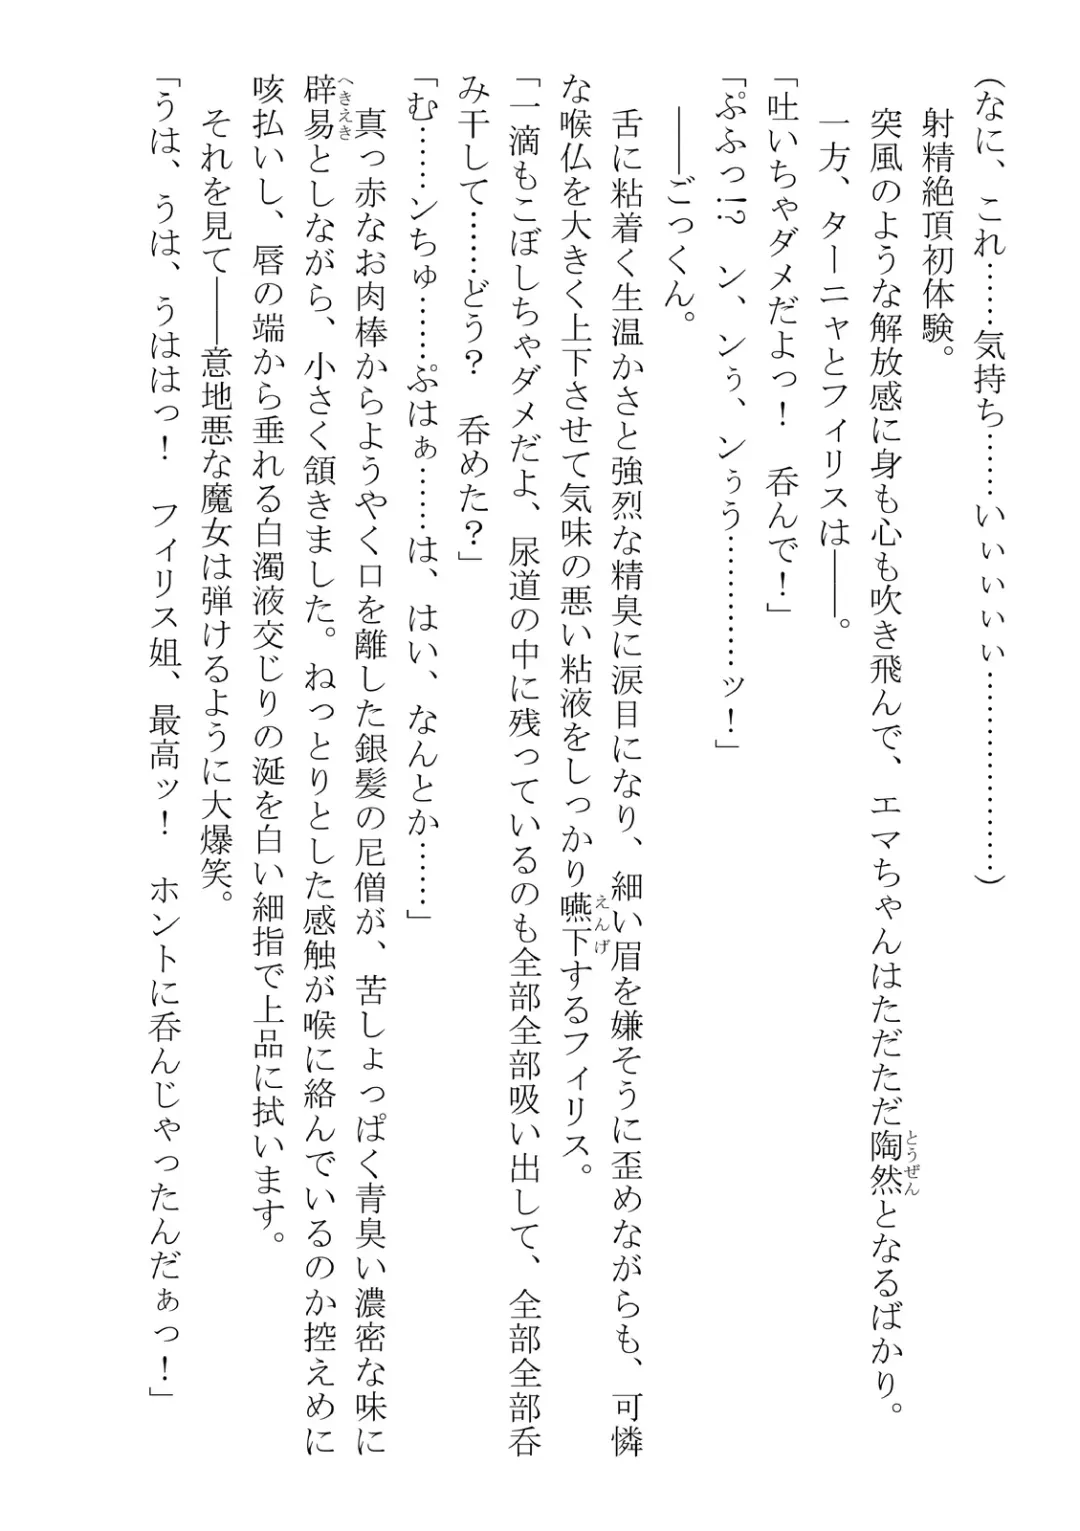 (なに、これ……気持ち……いぃぃぃぃ………………)
射精絶頂初体験。
突風のような解放感に身も心も吹き飛んで、エマちゃんはただただ陶然となるばかり。
一方、ターニャとフィリスは――。
「吐いちゃダメだよっ！　呑んで！」
「ぷふっ!?　ン、ンぅ、ンぅう…………ッ！」
――ごっくん。
舌に粘着く生温かさと強烈な精臭に涙目になり、細い眉を嫌そうに歪めながらも、可憐
な喉仏を大きく上下させて気味の悪い粘液をしっかり嚥下するフィリス。
「一滴もこぼしちゃダメだよ、尿道の中に残っているのも全部全部吸い出して、全部全部呑
み干して……どう？　呑めた？」
「む……ンちゅ……ぷはぁ……は、はい、なんとか……」
真っ赤なお肉棒からようやく口を離した銀髪の尼僧が、苦しょっぱく青臭い濃密な味に
辟易としながら、小さく頷きました。ねっとりとした感触が喉に絡んでいるのか控えめに
咳払いし、唇の端から垂れる白濁液交じりの涎を白い細指で上品に拭います。
それを見て――意地悪な魔女は弾けるように大爆笑。
「うは、うは、うははっ！　フィリス姐、最高ッ！　ホントに呑んじゃったんだぁっ！」